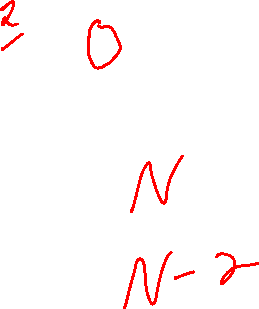 2 0
N
N-2